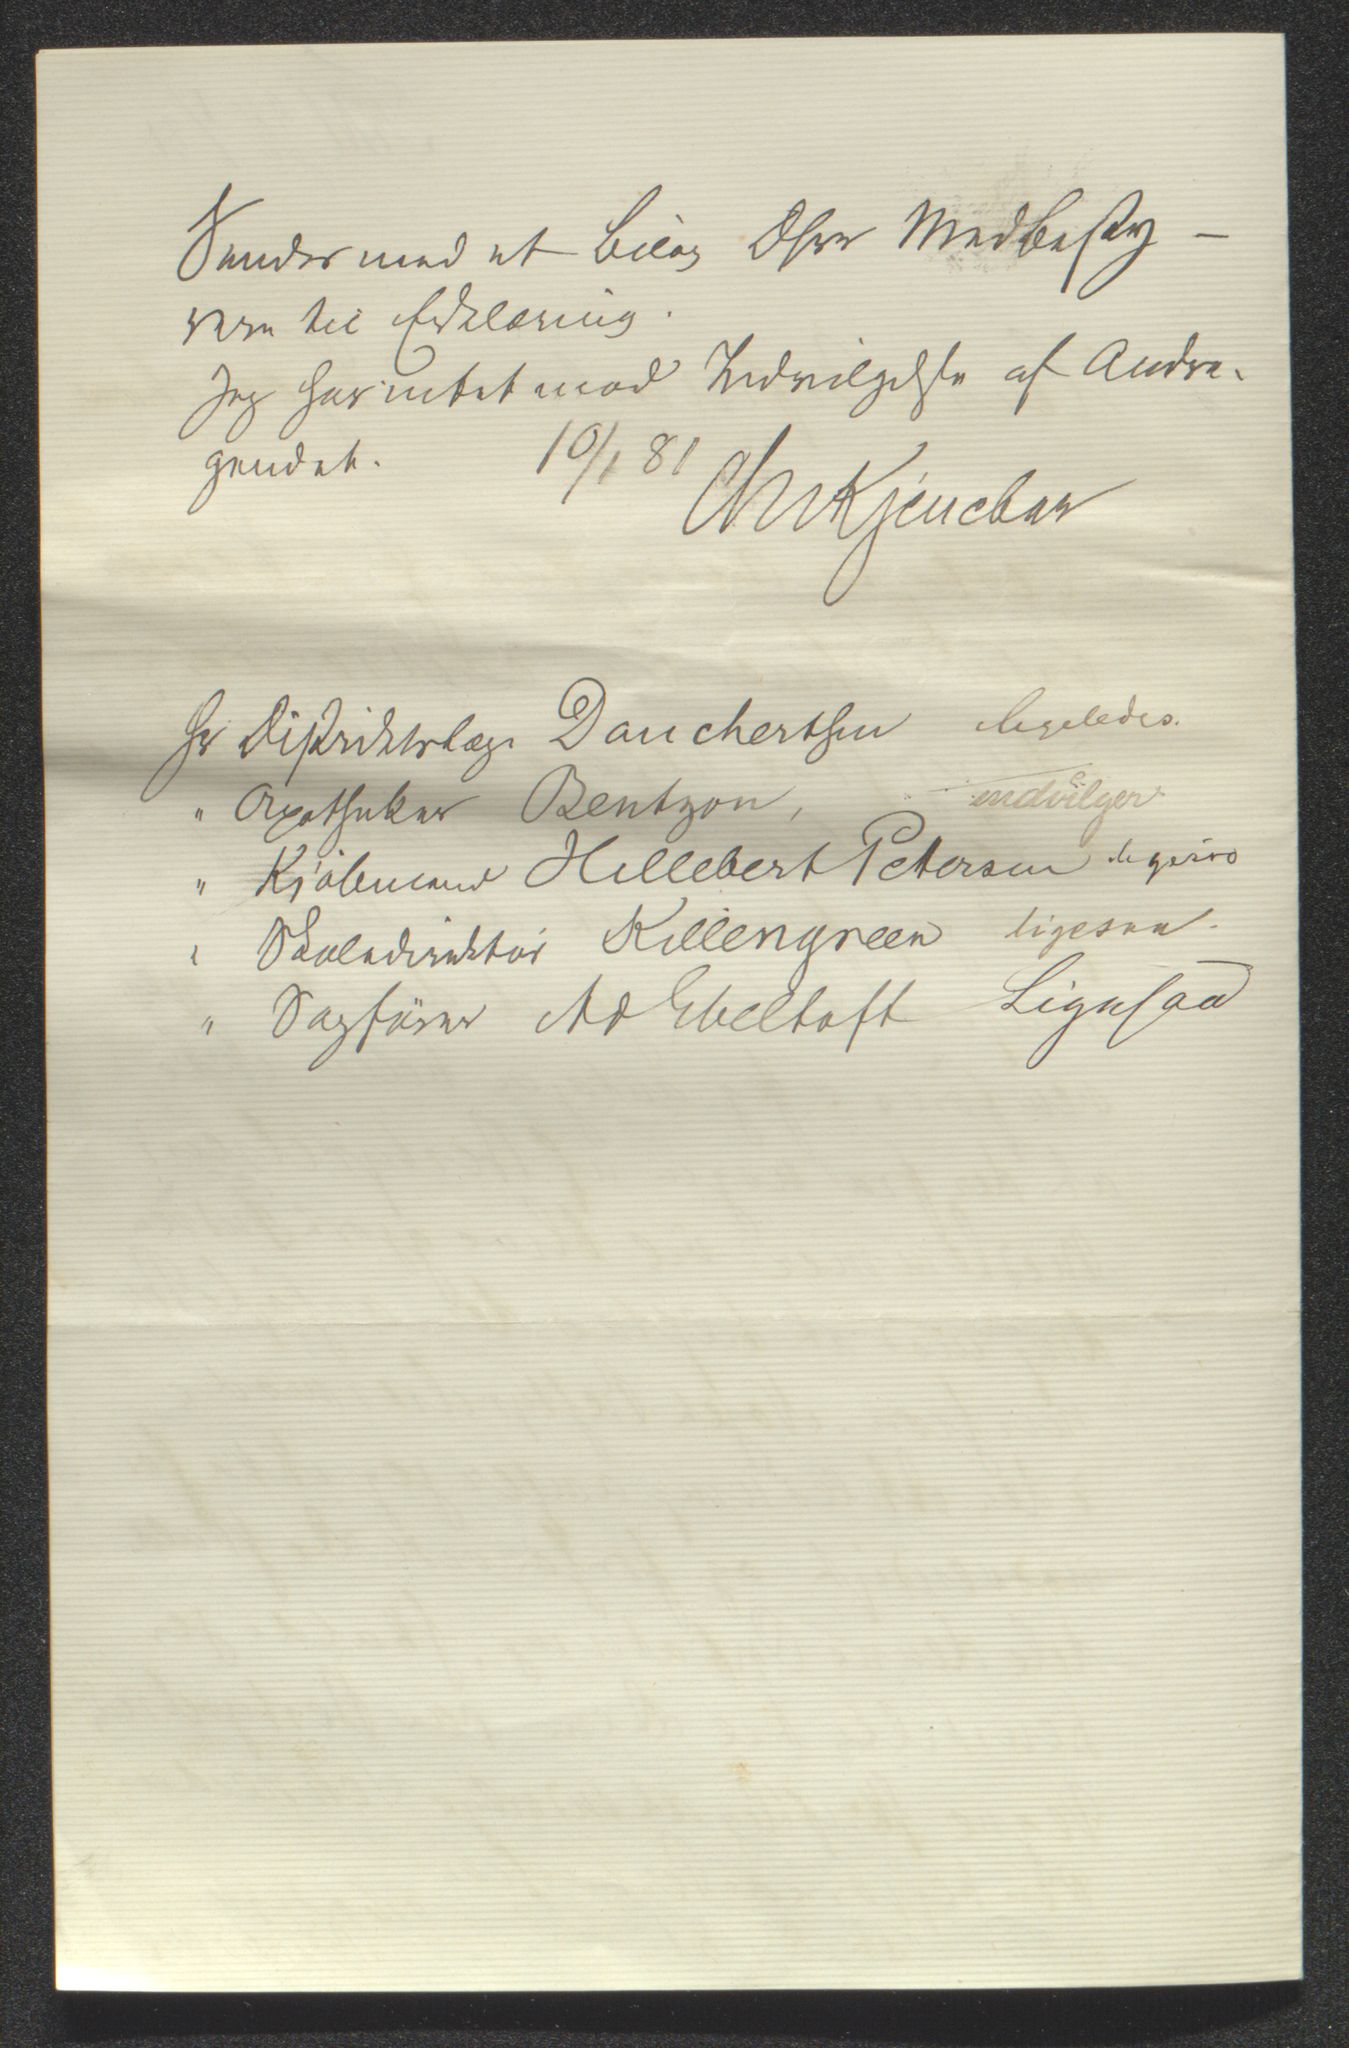 Sendes med et Bilag DHrr Medbesty-
rere til Erklæring.
Jeg har intet mod Indvilgelse af Andra-
gendet. 10/1 81
Kjeldseth
Hr Distriktslæge Danchertsen ligeledes.
" Apotheker Bentzon, indvilger
" Kjøbmand Hillebert Petersen ligesaa
" Skoledirektør Killengreen ligesaa.
" Sagfører Ad Ebeltoft Ligesaa